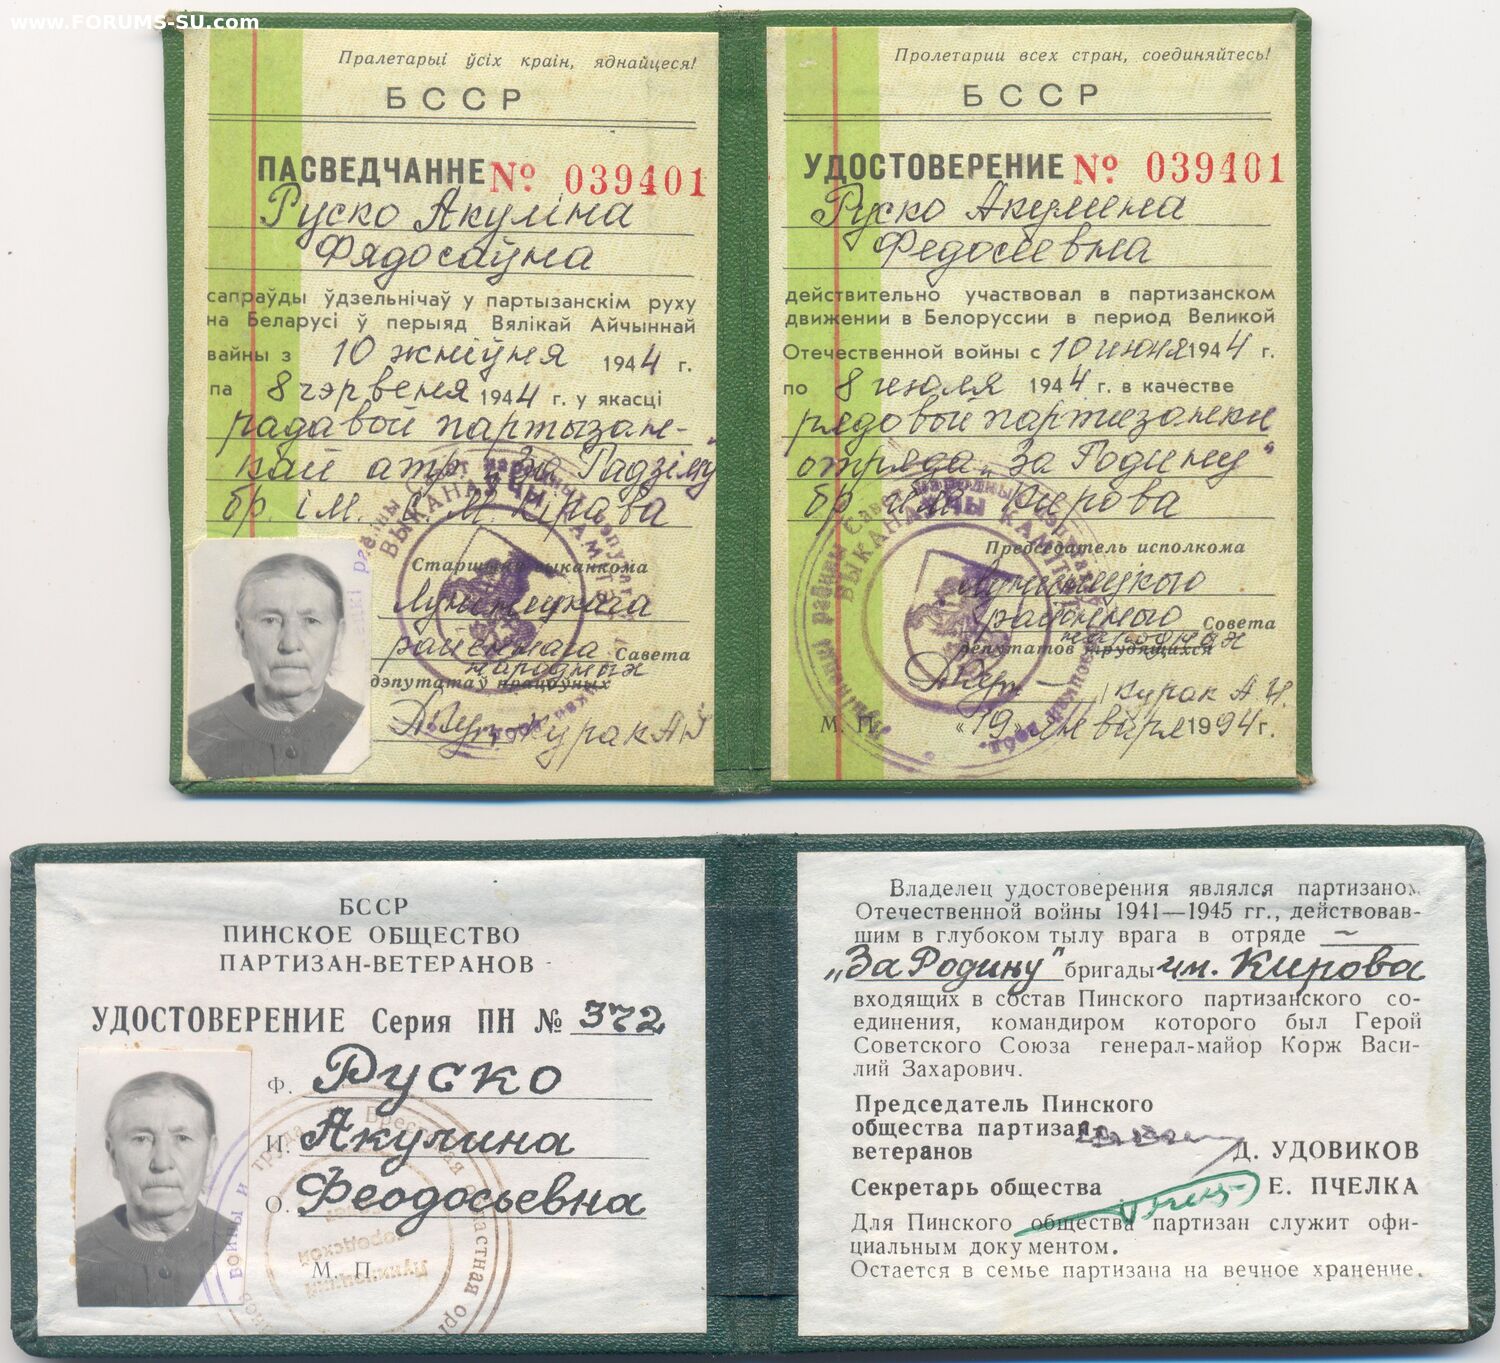 www.FORUMS-SU.com
Пралетарыі ўсіх краін, яднайцеся!
БССР
ПАСВЕДЧАННЕ № 039401
Руско Акуліна
Фядосаўна
сапраўды ўдзельнічаў у партызанскім руху
на Беларусі ў перыяд Вялікай Айчыннай
вайны з 10 жніўня 1944 г.
па 8 чэрвеня 1944 г. у якасці
радавой партызан-
кай атр. „За Радзіму"
бр. ім. С. М. Кірава
Старшыня выканкома
Лунінецкага
раённага Савета
народных
дэпутатаў працоўных
Курак А.І.
Пролетарии всех стран, соединяйтесь!
БССР
УДОСТОВЕРЕНИЕ № 039401
Руско Акулина
Федосеевна
действительно участвовал в партизанском
движении в Белоруссии в период Великой
Отечественной войны с 10 июня 1944 г.
по 8 июля 1944 г. в качестве
рядовой партизанки
отряда „За Родину"
бр. им. Кирова
Председатель исполкома
Лунинецкого
районного Совета
народных
депутатов трудящихся
Курак А.И.
М. П. «19» января 1994 г.
БССР
ПИНСКОЕ ОБЩЕСТВО
ПАРТИЗАН-ВЕТЕРАНОВ
УДОСТОВЕРЕНИЕ Серия ПН № 372
Ф. Руско
И. Акулина
О. Феодосьевна
М. П.
Владелец удостоверения являлся партизаном
Отечественной войны 1941—1945 гг., действовав-
шим в глубоком тылу врага в отряде ~
„За Родину" бригады им. Кирова
входящих в состав Пинского партизанского со-
единения, командиром которого был Герой
Советского Союза генерал-майор Корж Васи-
лий Захарович.
Председатель Пинского
общества партизан
ветеранов Д. УДОВИКОВ
Секретарь общества Е. ПЧЕЛКА
Для Пинского общества партизан служит офи-
циальным документом.
Остается в семье партизана на вечное хранение.